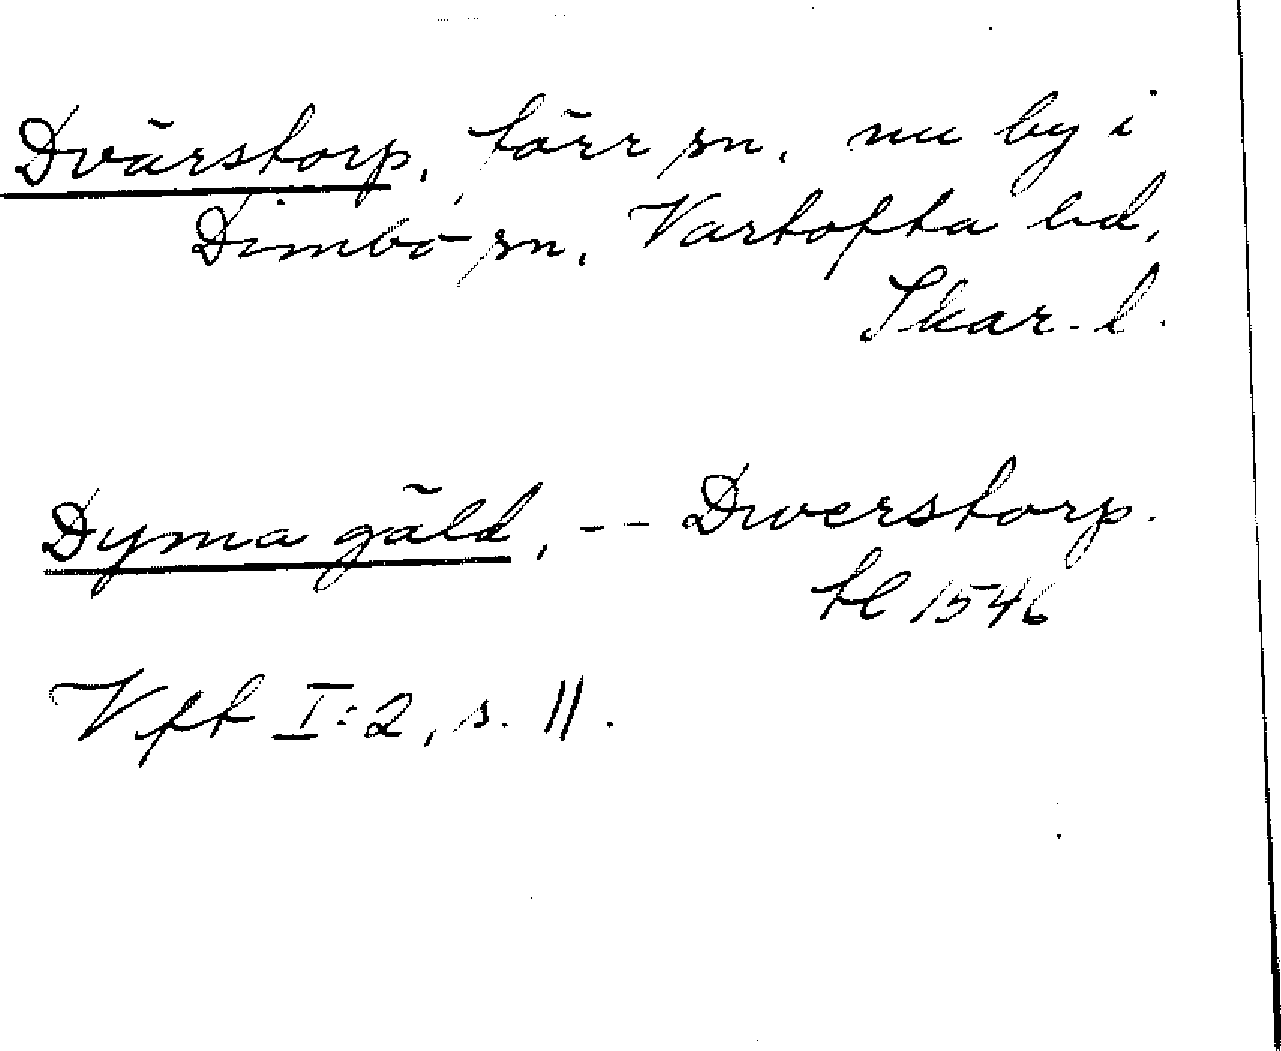 Dvärstorp, förr sn, nu by i
Dimbo sn, Vartofta hd,
Skar. l.
Dyma gäld, -- Dwerstorp.
tl 1546
Vft I:2, s. 11.